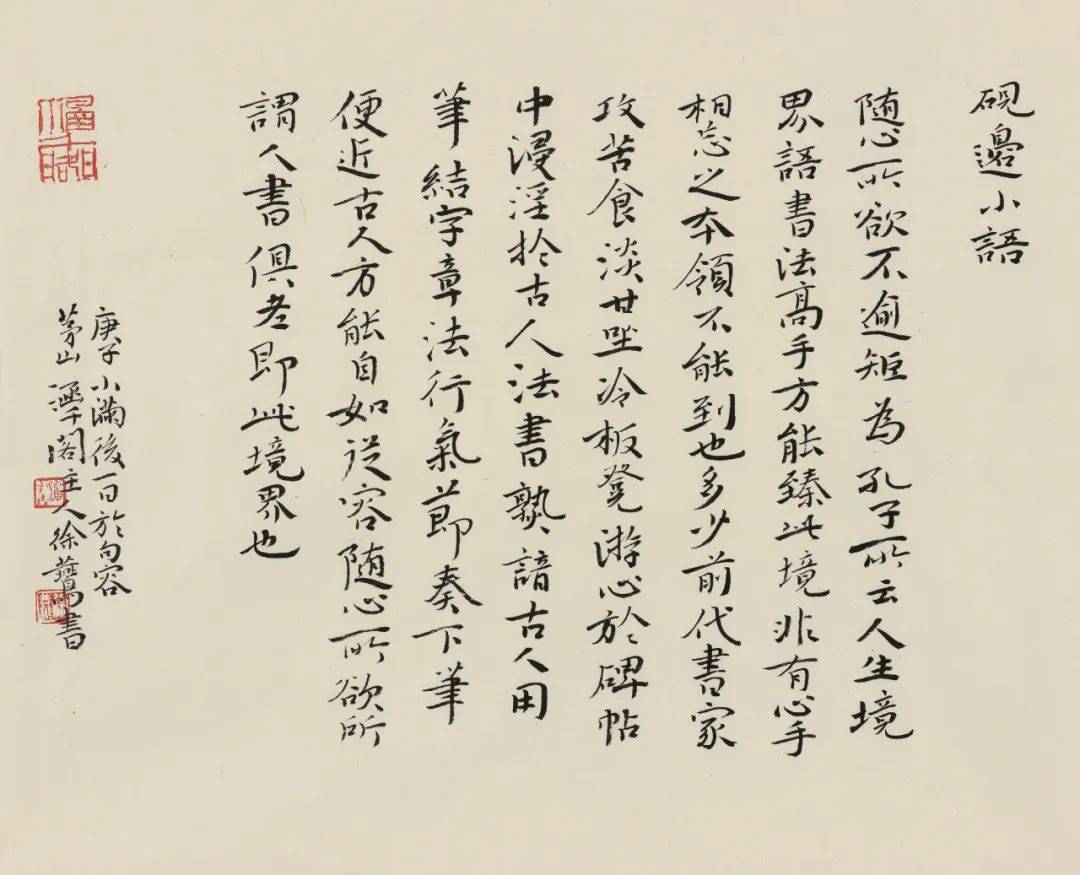 硯邊小語
随心所欲不逾矩為孔子所云人生境
界語書法高手方能臻此境非有心手
相忘之本領不能到也多少前代書家
攻苦食淡甘坐冷板凳游心於碑帖
中浸淫於古人法書熟諳古人用
筆結字章法行氣節奏下筆
便近古人方能自如從容随心所欲所
謂人書俱老即此境界也
庚子小滿後一日於句容
茅山涵千閣主人徐書